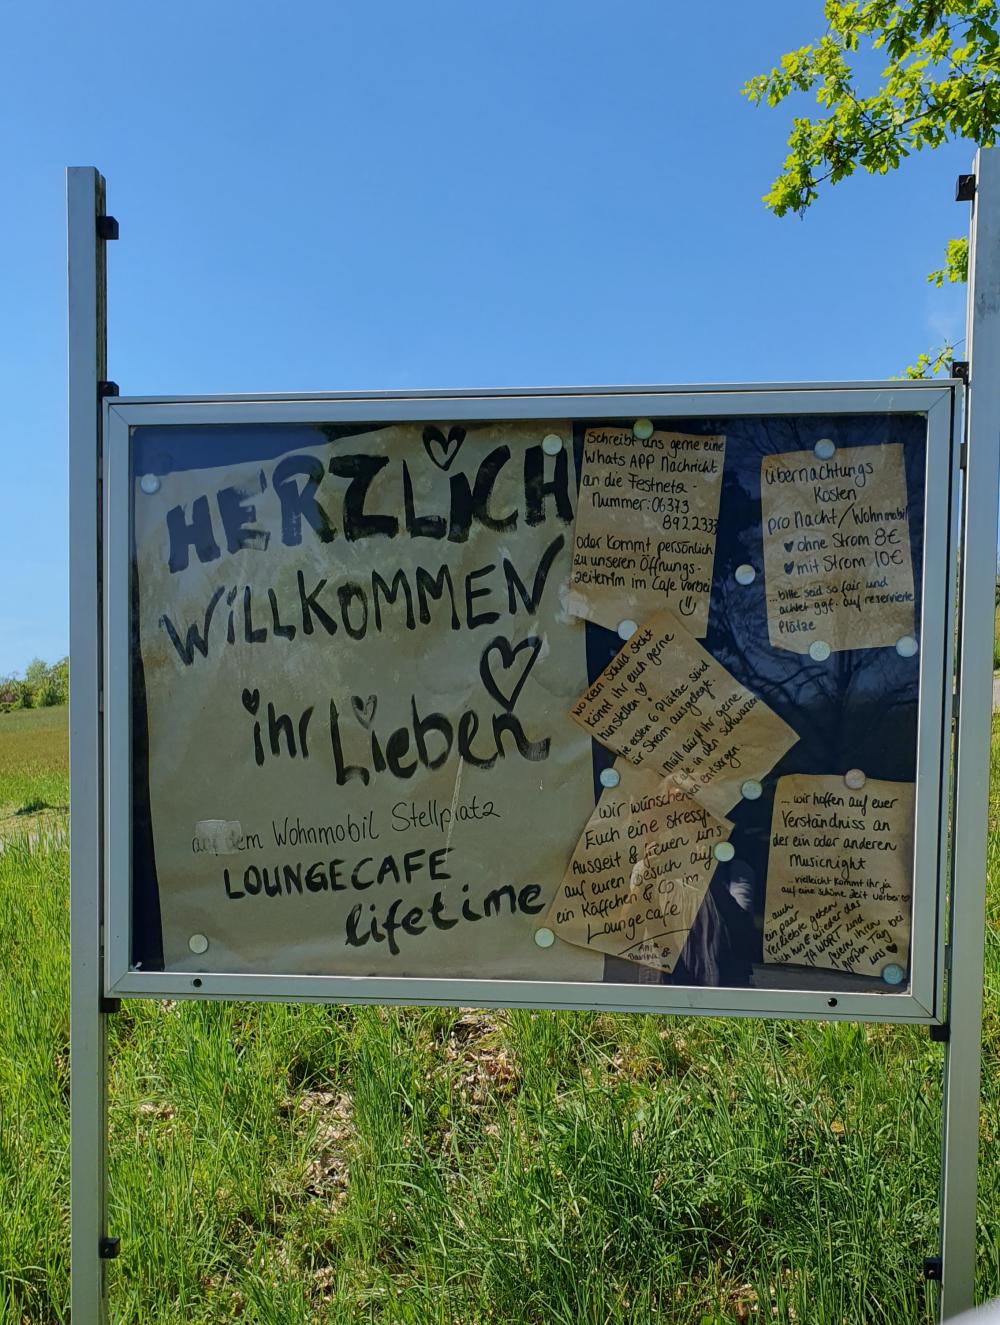 HERZLICH
WILLKOMMEN
ihr Lieben
auf dem Wohnmobil Stellplatz
LOUNGECAFE
lifetime
Schreibt uns gerne eine
Whats APP Nachricht
an die Festnetz-
Nummer: 06373
8922333
oder kommt persönlich
zu unseren Öffnungs-
zeiten im Cafe vorbei
Übernachtungs
Kosten
pro Nacht/Wohnmobil
ohne Strom 8€
mit Strom 10€
...bitte seid so fair und
achtet ggf. auf reservierte
Plätze
wo kein Schild steht
könnt ihr euch gerne
hinstellen
die ersten 6 Plätze sind
für Strom ausgelegt
Müll dürft ihr gerne
Cafe in den schwarzen
entsorgen
wir wünschen
Euch eine stressf.
Auszeit & freuen uns
auf euren Besuch auf
ein Käffchen & Co im
Loungecafe
Anja
... wir hoffen auf euer
Verständniss an
der ein oder anderen
Musicnight
...vielleicht kommt ihr ja
auf eine schöne Zeit vorbei
...auch
ein paar
Verliebte geben
sich hin & wieder das
JA WORT und
feiern ihren
großen Tag bei
uns